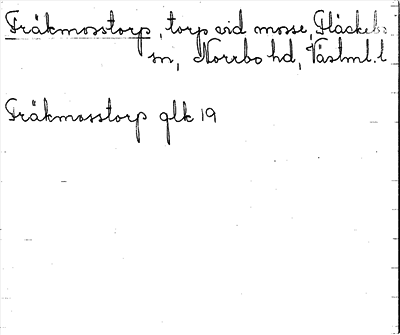 Fräkmosstorp, torp vid mosse, Fläckebo
sn, Norrbo hd, Västml. l
Fräkmosstorp glk 19